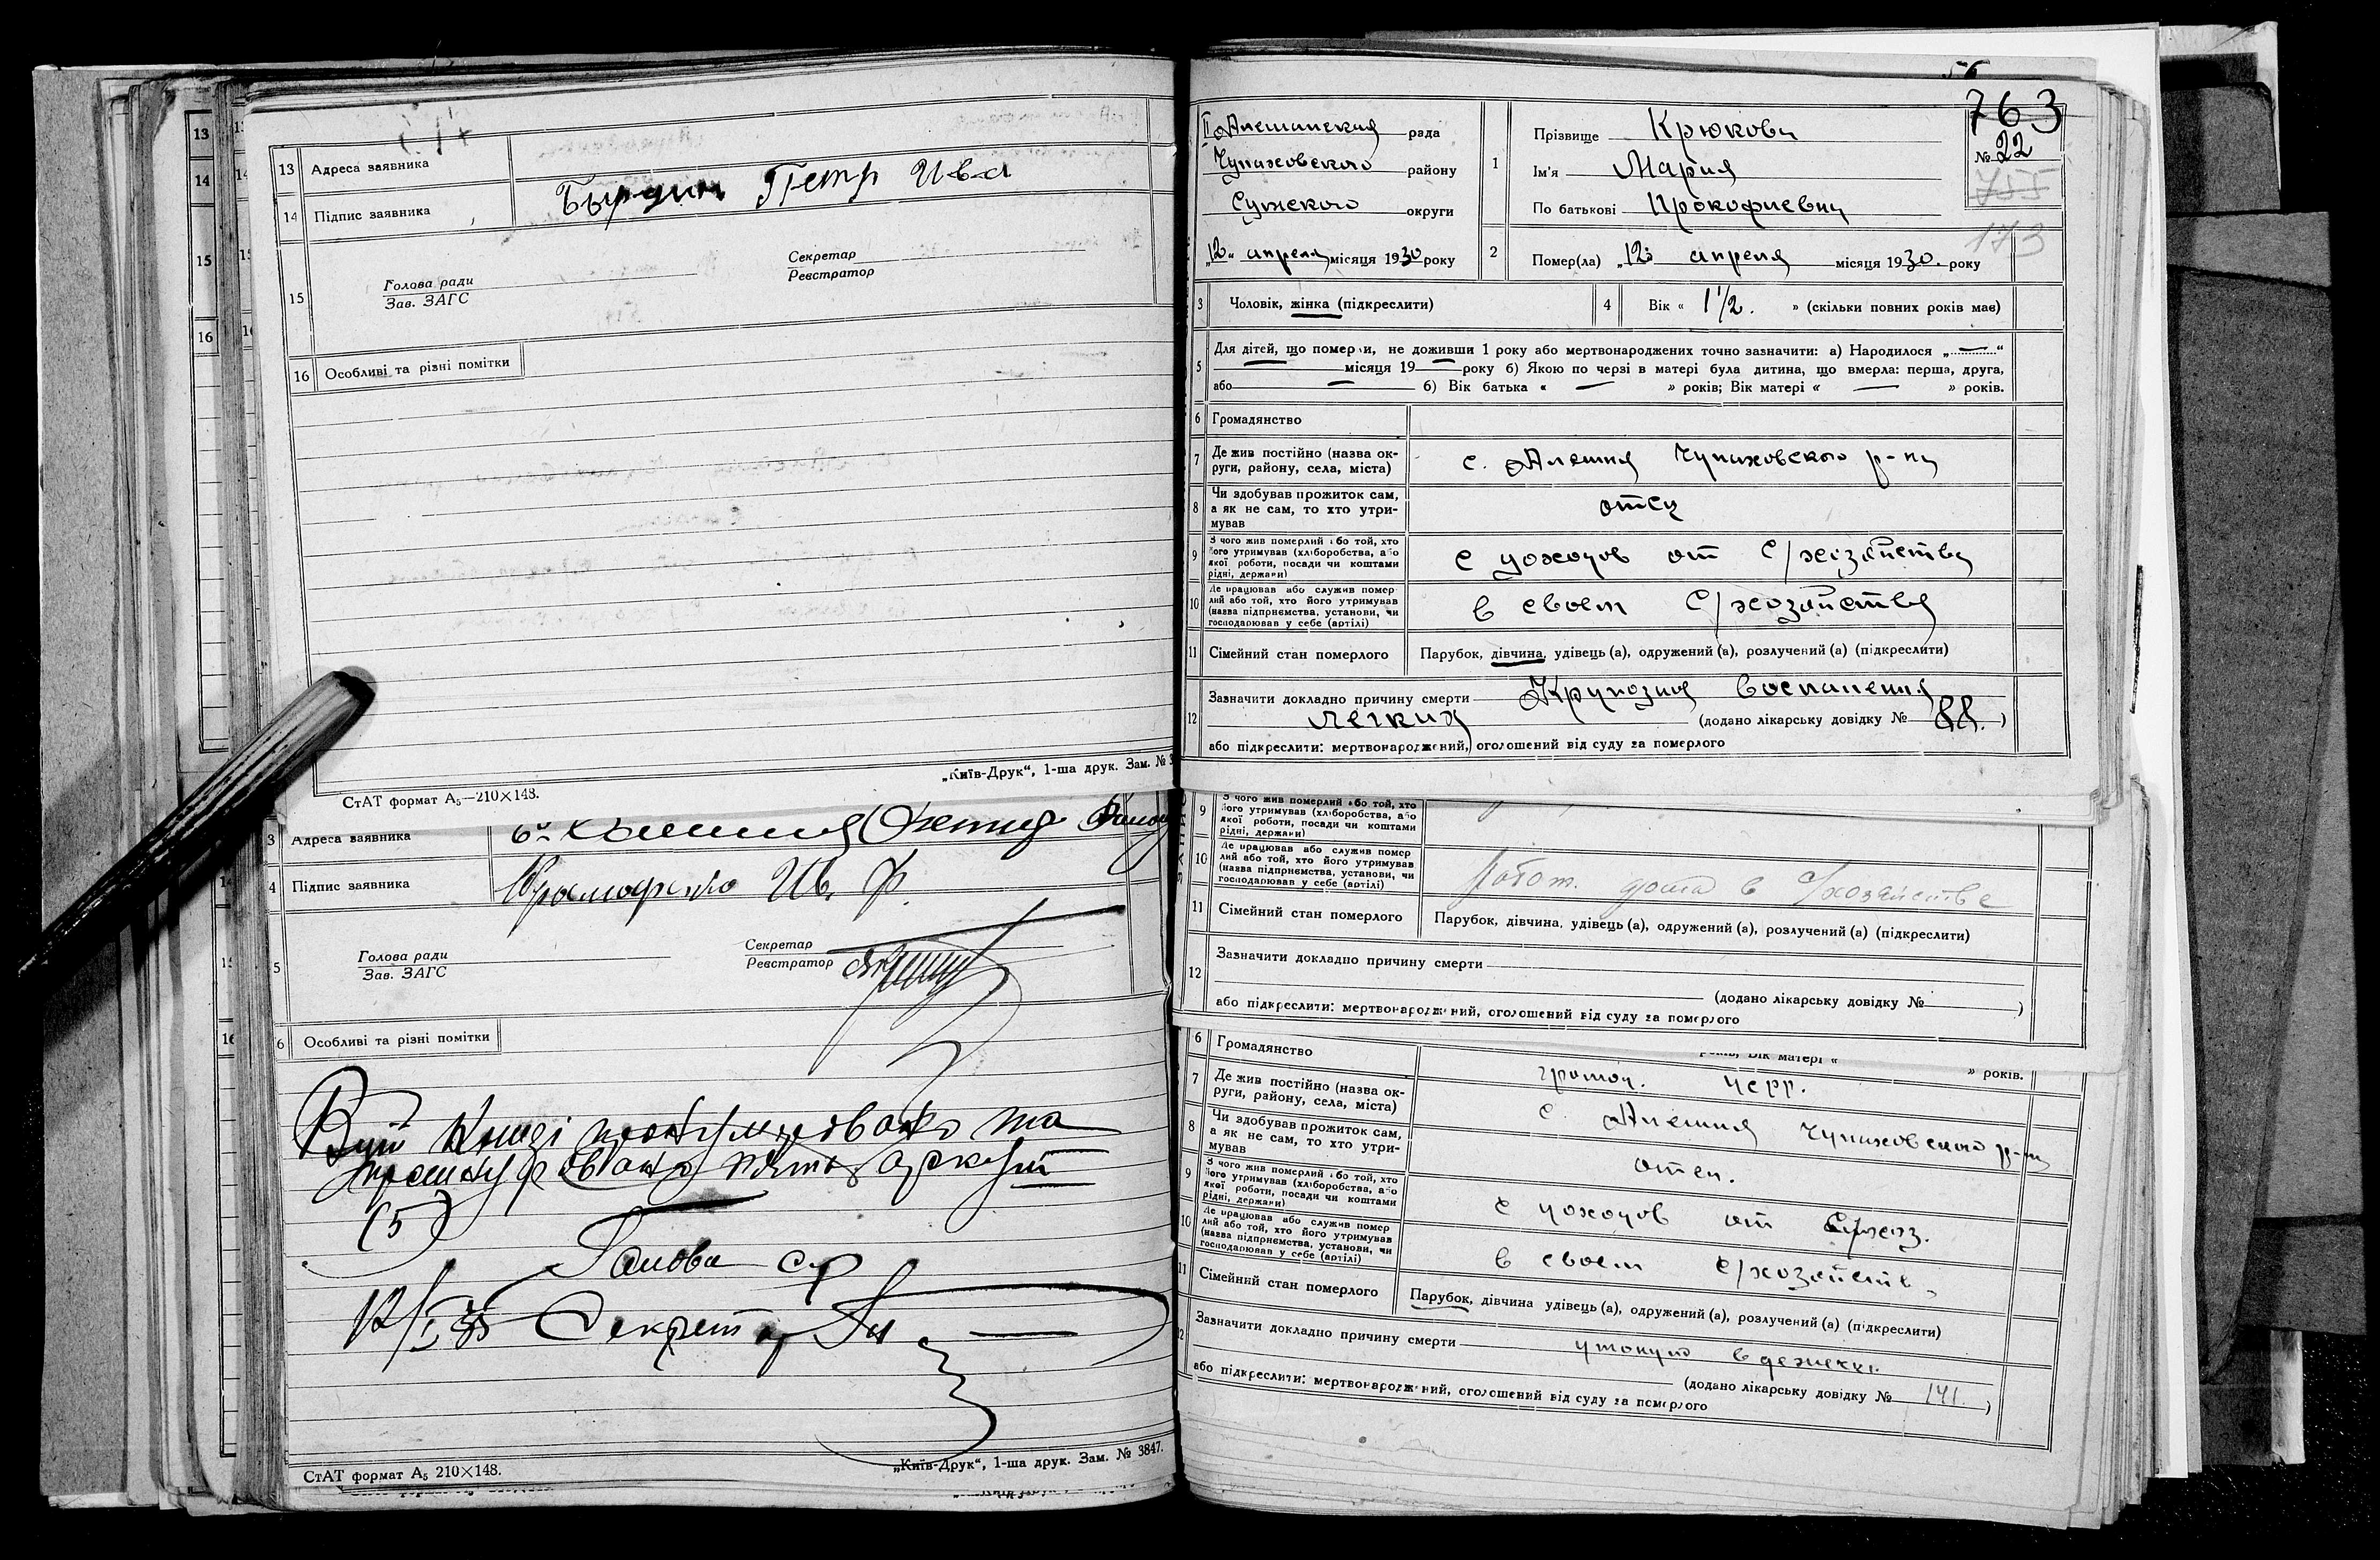 13 Адреса заявника
14 Підпис заявника Петр Ива
15 Голова ради
Зав. ЗАГС
Секретар
Реєстратор
16 Особливі та різні помітки
„Київ-Друк“, 1-ша друк. Зам. №
СтАТ формат А₅—210×148.
Адреса заявника
Підпис заявника Ив. Ф.
Голова ради
Зав. ЗАГС
Секретар
Реєстратор
Особливі та різні помітки
Книзі пронумеровано та
прошнуровано аркушів
(5)
Голова с/р
Секретар
„Київ-Друк“, 1-ша друк. Зам. № 3847.
СтАТ формат А₅ 210×148.
56
763
№ 22
173
Алешанская рада
Чупаховского району
Сумского округи
„12“ апреля місяця 1930 року
1 Прізвище Крюкова
Ім'я Мария
По батькові Прокофиевна
2 Помер(ла) „12“ апреля місяця 1930. року
3 Чоловік, жінка (підкреслити)
4 Вік « 1 1/2. » (скільки повних років має)
5 Для дітей, що померли, не доживши 1 року або мертвонароджених точно зазначити: а) Народилося „—“
місяця 19— року б) Якою по черзі в матері була дитина, що вмерла: перша, друга,
або — б) Вік батька « — » років; Вік матері « — » років.
6 Громадянство
7 Де жив постійно (назва округи, району, села, міста) с. Алешня Чупаховского р-на
8 Чи здобував прожиток сам, а як не сам, то хто утримував отец
9 З чого жив померлий або той, хто його утримував (хліборобства, або якої роботи, посади чи коштами рідні, держави) с доходов от с/хозяйства
10 Де працював або служив померлий або той, хто його утримував (назва підприємства, установи, чи господарював у себе (артілі) в своем с/хозяйстве
11 Сімейний стан померлого Парубок, дівчина, удівець (а), одружений (а), розлучений (а) (підкреслити)
12 Зазначити докладно причину смерти Крупозная воспаления
легких (додано лікарську довідку № 88.)
або підкреслити: мертвонароджений, оголошений від суду за померлого
9 З чого жив померлий або той, хто
його утримував (хліборобства, або
якої роботи, посади чи коштами
рідні, держави)
10 Де працював або служив померлий або той, хто його утримував (назва підприємства, установи, чи господарював у себе (артілі) Работ. дома в с/хозяйстве
11 Сімейний стан померлого Парубок, дівчина, удівець (а), одружений (а), розлучений (а) (підкреслити)
12 Зазначити докладно причину смерти
(додано лікарську довідку № )
або підкреслити: мертвонароджений, оголошений від суду за померлого
років; Вік матері « » років.
6 Громадянство
7 Де жив постійно (назва округи, району, села, міста) с. Алешня Чупаховского р-на
8 Чи здобував прожиток сам, а як не сам, то хто утримував отец.
9 З чого жив померлий або той, хто його утримував (хліборобства, або якої роботи, посади чи коштами рідні, держави) с доходов от с/хоз.
10 Де працював або служив померлий або той, хто його утримував (назва підприємства, установи, чи господарював у себе (артілі) в своем с/хозяйств
11 Сімейний стан померлого Парубок, дівчина удівець (а), одружений (а), розлучений (а) (підкреслити)
12 Зазначити докладно причину смерти утонул в
(додано лікарську довідку № 141.)
або підкреслити: мертвонароджений, оголошений від суду за померлого